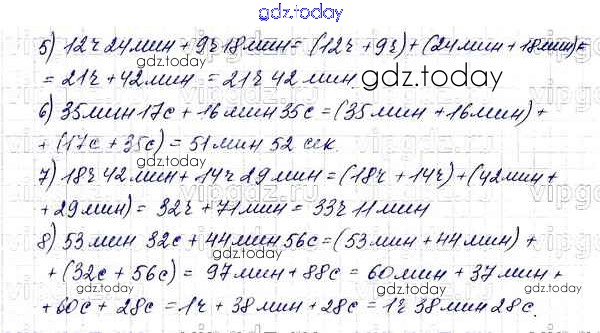 gdz.today
5) 12ч 24мин + 9ч 18мин = (12ч + 9ч) + (24мин + 18мин) =
= 21ч + 42мин = 21ч 42 мин.
gdz.today
6) 35мин 17с + 16мин 35с = (35мин + 16мин) +
+ (17с + 35с) = 51мин 52 сек.
gdz.today
7) 18ч 42мин + 14ч 29мин = (18ч + 14ч) + (42мин +
+ 29мин) = 32ч + 71мин = 33ч 11мин
gdz.today
8) 53мин 32с + 44мин 56с = (53мин + 44мин) +
+ (32с + 56с) = 97мин + 88с = 60мин + 37мин +
gdz.today
+ 60с + 28с = 1ч + 38мин + 28с = 1ч 38мин 28с.